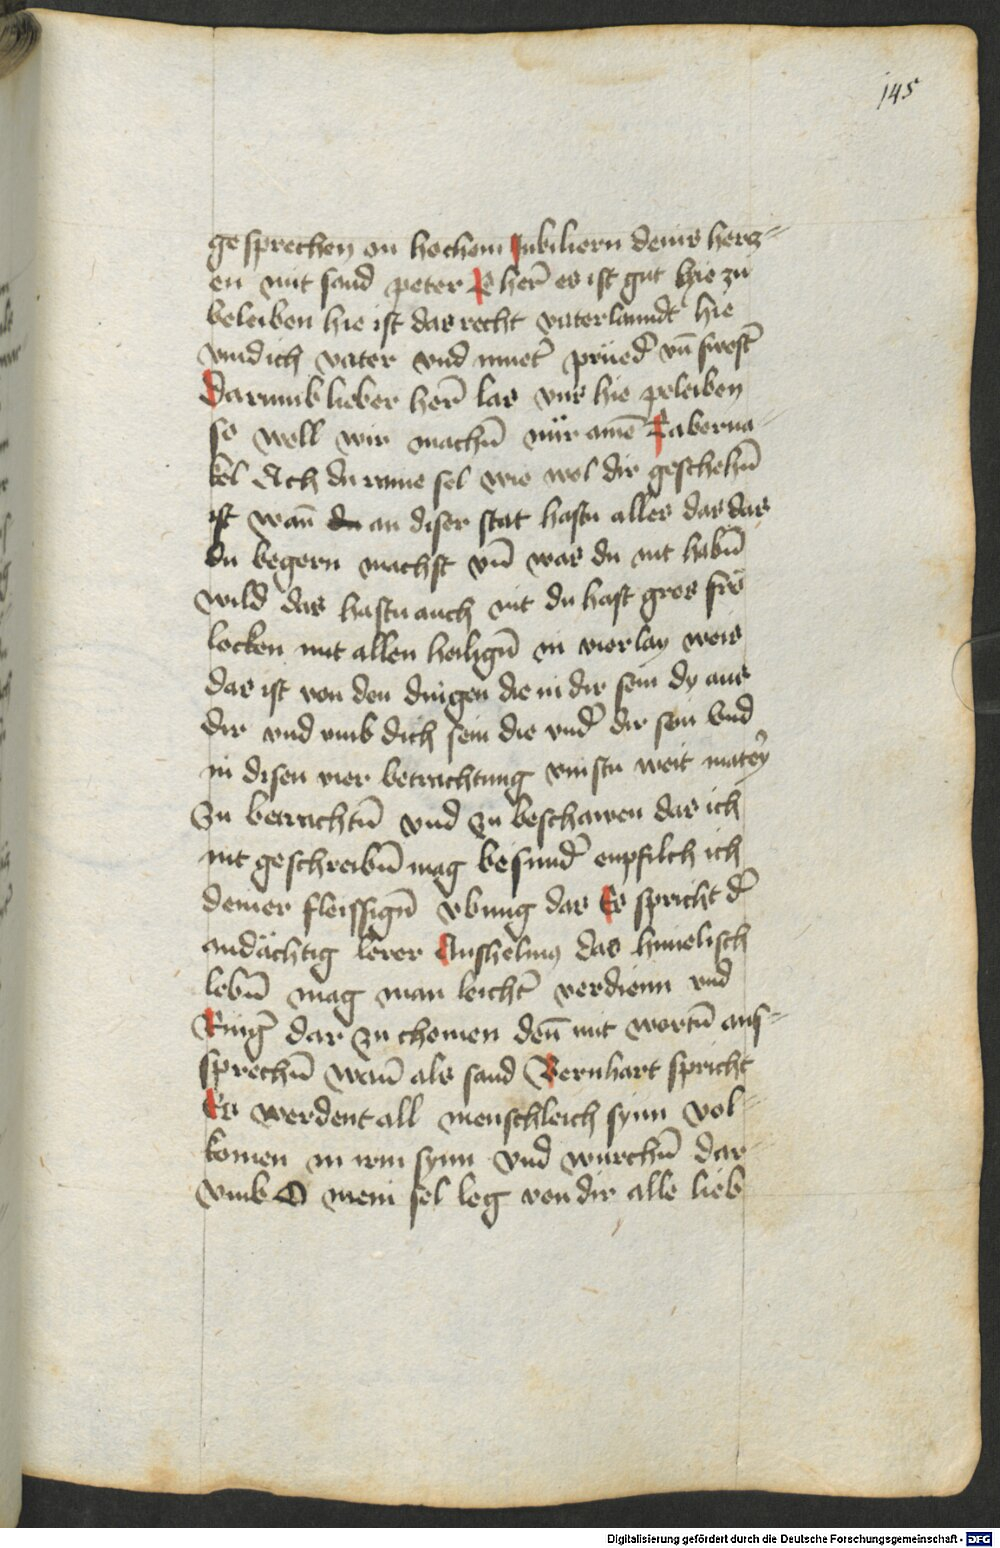 145
gesprechen on hochem Jubiliern deins hercz=
en mit sand peter O her̄ es ist gut hie zu
beleiben hie ist das recht vaterlanndt hie
vind ich vater vnd muet̄ prued̄ vn̄ swest̄
Darumb lieber her̄ las vns hie peleiben
so well wir machn̄ nür ainē Taberna=
kel Ach du raine sel wie wol dir geschehn̄
ist wan̄ du an diser stat hastu alles das das
du begern machst vn̄ was du nit habn̄
wild das hastu auch nit du hast gros fro
locken mit allen heilign̄ in vierlay weis
das ist von den dingen die in dir sein dy aus
dir vnd vmb dich sein die vnd̄ dir sein Vnd
in disen vier betrachtung vinstu weit matery
Zu betrachtn̄ vnd zu beschawen das ich
nit geschreibn̄ mag besund̄ enpfilch ich
deiner fleissign̄ vbung das Es spricht d̄
andächtig lerer Anshelmq das himelisch
lebn̄ mag man leicht̄ verdienn vnd
Rinḡ dar zu chomen den̄ mit wortn̄ aus=
sprechn̄ wan̄ als sand Bernhart spricht
Es werdent all menschleich synn vol=
komen in irm synn vnd würchn̄ dar=
vmb O mein sel leg von dir alle lieb
Digitalisierung gefördert durch die Deutsche Forschungsgemeinschaft - DFG